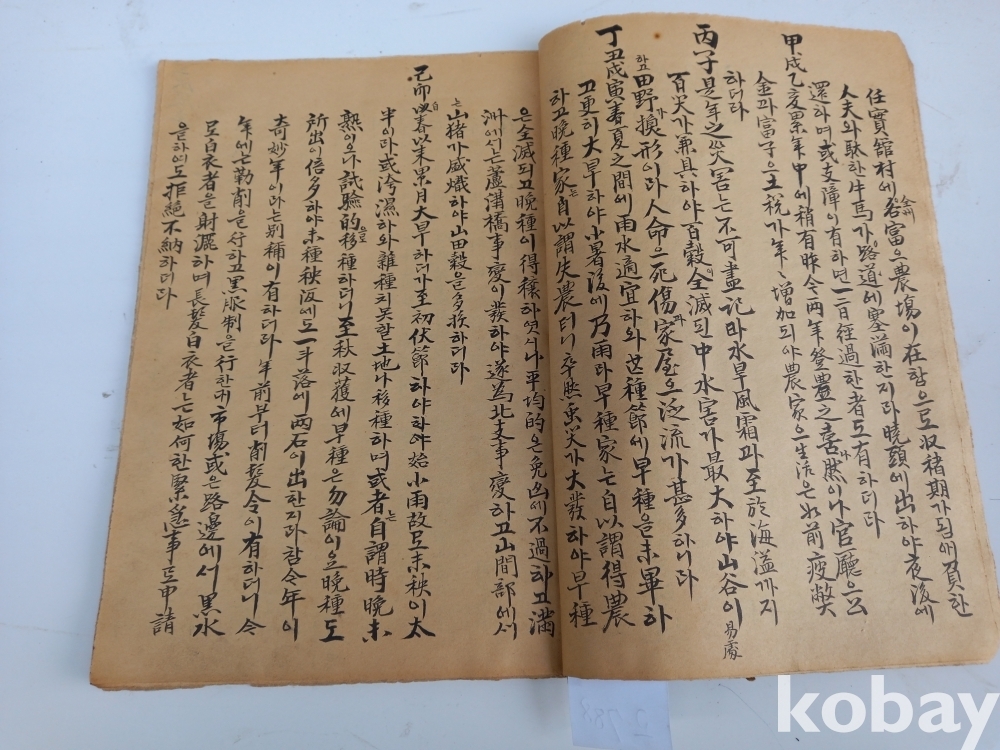 任實舘村에 各 富으 農場이 在함으로 収穡期가 됨애 負한
人夫와 駄한 牛馬가 路道에 塞滿한지라 曉頭에 出하야 夜後에
還하며 或 支障이 有하면 一二日 經過한 者도 有하더라
甲戌乙亥 累年中에 稍有 昨今 兩年 登豊之喜然이나 官廳으 公
金과 富子으 土稅가 年〻 增加되야 農家으 生活은 如前 疲弊
하더라
丙子 是年之灾害는 不可盡記라 水旱風霜과 至於海溢까지
百灾가 兼具하야 百穀이 全滅되 中 水害가 最大하야 山谷이 易處
하고 田野가 換形이라 人命으 死傷과 家屋으 泛流가 甚多하니라
丁丑戊寅 春夏之間에 雨水適宜하와 甘種節에 早種을 未畢하
고 更히 大旱하야 小暑後에 乃雨라 早種家는 自以謂得農
하고 晩種家 自以謂失農터니 卒然 虫灾가 大發하야 早種
은 全滅되고 晩種이 得穰하엿시나 平均的은 免凶에 不過하고 滿
洲에서는 蘆溝橋事變이 發하야 遂爲北支事變하고 山間部에서
는 山猪가 威熾하야 山田穀을 多損하더라
己卯 自春以來 累月大旱하더가 至初伏節하야 始小雨故로 未秧이 太
半이라 或 洿濕하와 雜種치 못할 土地나 移種하며 或者는 自謂時晩未
熟이으나 試驗的으로 移種하더니 至秋収獲에 早種은 勿論이으 晩種도
所出이 倍多하야 未種秧坂에도 一斗落에 兩石이 出한지라 참 今年이
奇妙年이라는 別稱이 有하더라 年前부터 削髮令이 有하더니 今
年에는 勒削을 行하고 黑服制을 行한대 市場 或은 路邊에서 黑水
로 白衣者을 射灑하며 長髮白衣者는 如何한 緊急事로 申請
을 하여도 拒絶不納하더라
kobay